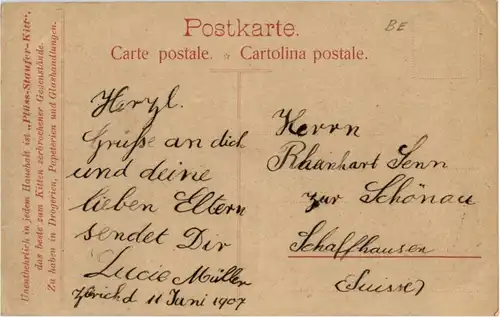 Postkarte.
Carte postale. ☆ Cartolina postale.
BE
Unentbehrlich in jedem Haushalt ist „Plüss-Staufer-Kitt“,
das beste zum Kitten zerbrochener Gegenstände.
Zu haben in Drogerien, Papeterien und Glashandlungen.
Herzl.
Grüsse an dich
und deine
lieben Eltern
sendet Dir
Lucie Müller
Zürich d 11 Juni 1907
Herrn
Rhainhart Senn
zur Schönau
Schaffhausen
(Suisse)